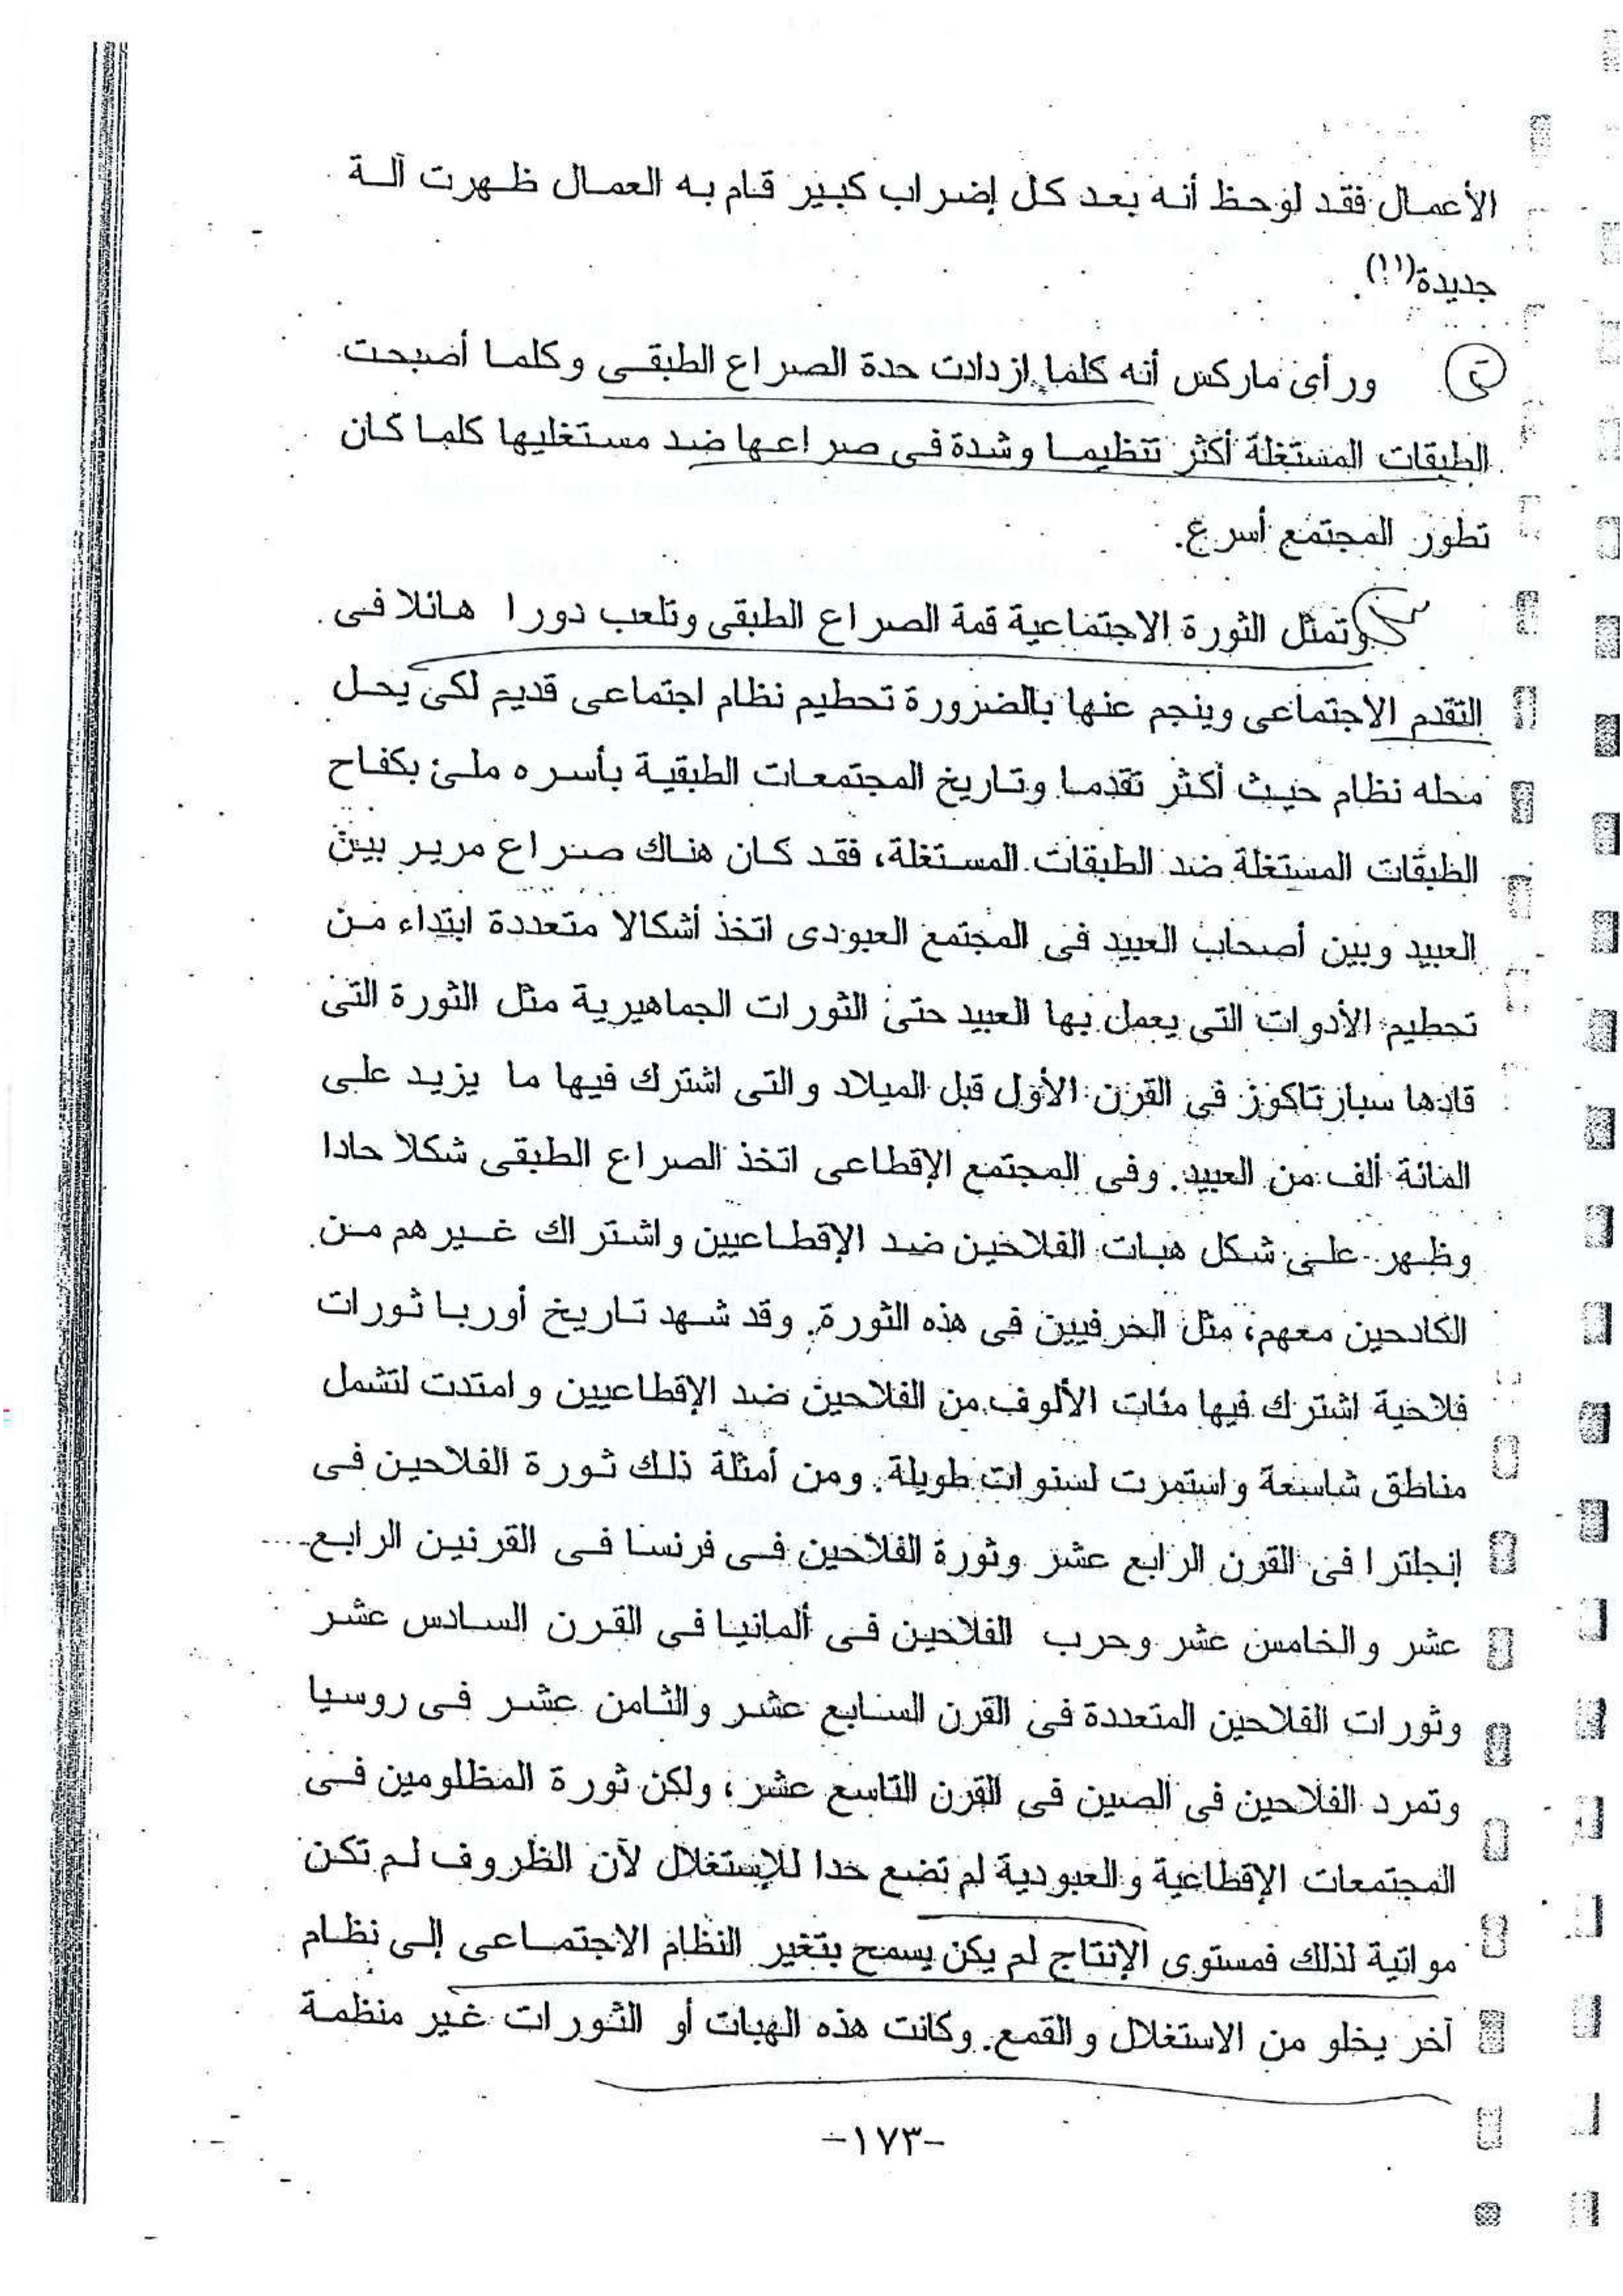 الأعمال فقد لوحظ أنه بعد كل إضراب كبير قام به العمال ظهرت آلة
جديدة(١١).
ورأى ماركس أنه كلما ازدادت حدة الصراع الطبقى وكلما أصبحت
الطبقات المستغلة أكثر تنظيما وشدة فى صراعها ضد مستغليها كلما كان
تطور المجتمع أسرع.
وتمثل الثورة الاجتماعية قمة الصراع الطبقى وتلعب دورا هائلا فى
التقدم الاجتماعى وينجم عنها بالضرورة تحطيم نظام اجتماعى قديم لكى يحل
محله نظام حيث أكثر تقدما وتاريخ المجتمعات الطبقية بأسره ملئ بكفاح
الطبقات المستغلة ضد الطبقات المستغلة، فقد كان هناك صراع مرير بين
العبيد وبين أصحاب العبيد فى المجتمع العبودى اتخذ أشكالا متعددة ابتداء من
تحطيم الأدوات التى يعمل بها العبيد حتى الثورات الجماهيرية مثل الثورة التى
قادها سبارتاكوز فى القرن الأول قبل الميلاد والتى اشترك فيها ما يزيد على
المائة ألف من العبيد. وفى المجتمع الإقطاعى اتخذ الصراع الطبقى شكلا حادا
وظهر على شكل هبات الفلاحين ضد الإقطاعيين واشتراك غيرهم من
الكادحين معهم، مثل الحرفيين فى هذه الثورة. وقد شهد تاريخ أوربا ثورات
فلاحية اشترك فيها مئات الألوف من الفلاحين ضد الإقطاعيين وامتدت لتشمل
مناطق شاسعة واستمرت لسنوات طويلة. ومن أمثلة ذلك ثورة الفلاحين فى
إنجلترا فى القرن الرابع عشر وثورة الفلاحين فى فرنسا فى القرنين الرابع
عشر والخامس عشر وحرب الفلاحين فى ألمانيا فى القرن السادس عشر
وثورات الفلاحين المتعددة فى القرن السابع عشر والثامن عشر فى روسيا
وتمرد الفلاحين فى الصين فى القرن التاسع عشر، ولكن ثورة المظلومين فى
المجتمعات الإقطاعية والعبودية لم تضع حدا للإستغلال لأن الظروف لم تكن
مواتية لذلك فمستوى الإنتاج لم يكن يسمح بتغير النظام الاجتماعى إلى نظام
آخر يخلو من الاستغلال والقمع. وكانت هذه الهبات أو الثورات غير منظمة
-١٧٣-